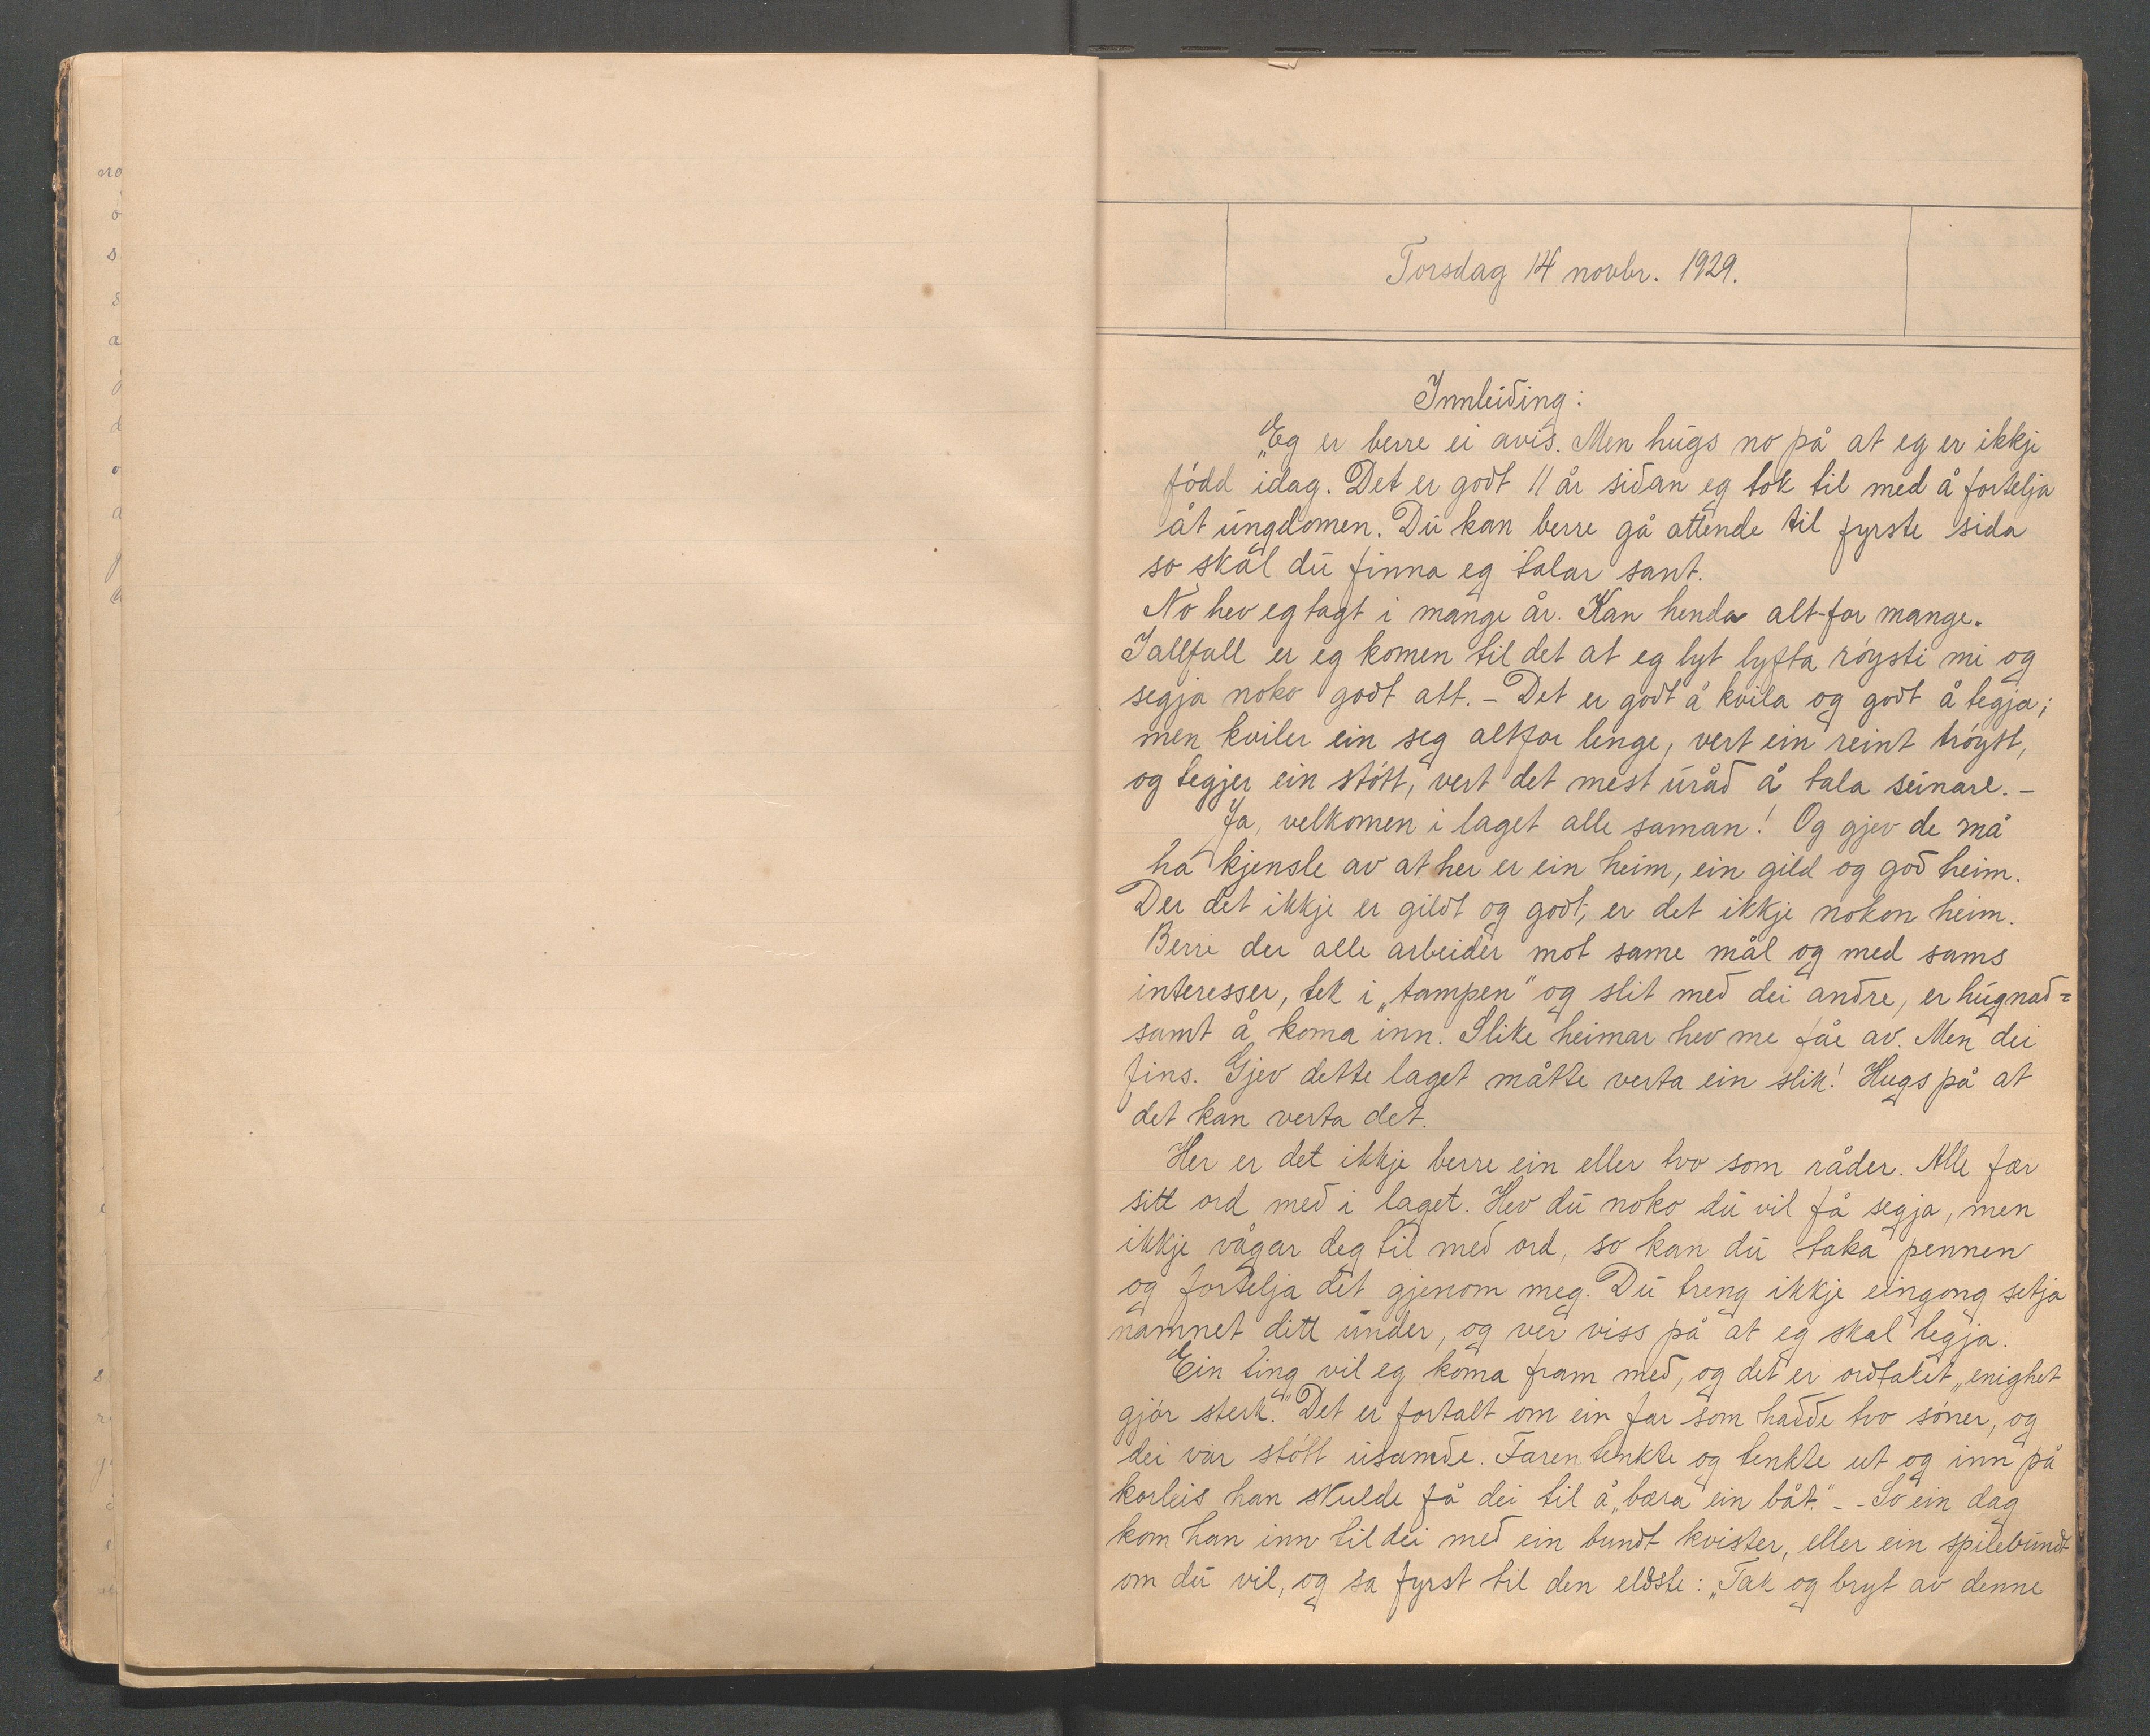 Torsdag 14 novbr. 1929.
Innleiding:
„Eg er berre ei avis. Men hugs no på at eg er ikkje
fódd idag. Det er godt 11 år sidan eg tok til med å fortelja
åt ungdomen. Du kan berre gå attende til fyrste sida
so skal du finna eg talar sant.
No hev eg tagt i mange år. Kan henda alt-for mange.
Iallfall er eg komen til det at eg lyt lyfta róysti mi og
segja noko godt att. – Det er godt å kvila og godt å tegja;
men kviler ein seg altfor lenge, vert ein reint tróytt,
og tegjer ein stótt, vert det mest uråd å tala seinare. –
Ja, velkomen i laget alle saman! Og gjev de må
ha kjensle av at her er ein heim, ein gild og god heim.
Der det ikkje er gildt og godt, er det ikkje nokon heim.
Berre der alle arbeider mot same mål og med sams
interesser, tek i „tampen" og slit med dei andre, er hugnad=
samt å koma inn. Slike heimar hev me fåe av. Men dei
fins. Gjev dette laget måtte verta ein slik! Hugs på at
det kan verta det.
Her er det ikkje berre ein eller tvo som råder. Alle fær
sitt ord med i laget. Hev du noko du vil få segja, men
ikkje vågar deg til med ord, so kan du taka pennen
og fortelja det gjenom meg. Du treng ikkje eingong setja
namnet ditt under, og ver viss på at eg skal tegja.
Ein ting vil eg koma fram med, og det er ordtaket „enighet
gjór sterk." Det er fortalt om ein far som hadde tvo sóner, og
dei var stótt usamde. Faren tenkte og tenkte ut og inn på
korleis han skulde få dei til å „bæra ein båt." – – So ein dag
kom han inn til dei med ein bundt kvister, eller ein spilebundt
om du vil, og sa fyrst til den eldste: „Tak og bryt av denne